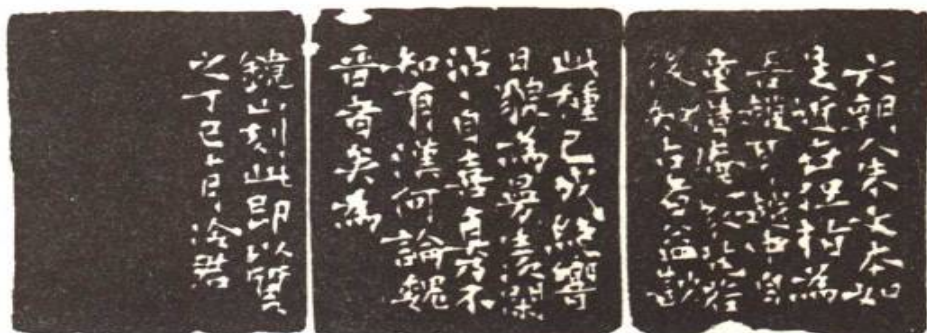 六朝人朱文本如
是近世徑指為
吾趙耳越中自
後知古者益尠
此種已成絕響
日貌為曼生次閑
沾沾自喜真乃不
知有漢何論魏
晉者矣為
鏡山刻此即以質
之丁巳十月冷君